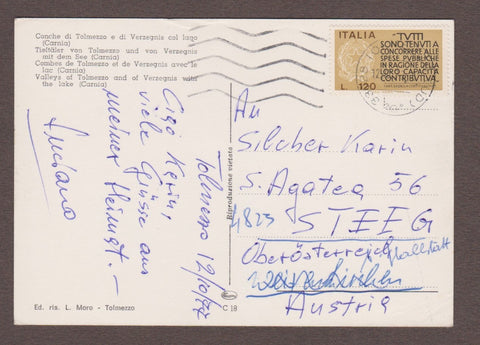 Conche di Tolmezzo e di Verzegnis col lago
(Carnia)
Tieltäler von Tolmezzo und von Verzegnis
mit dem See (Carnia)
Combes de Tolmezzo et de Verzegnis avec le
lac (Carnia)
Valleys of Tolmezzo and of Verzegnis with
the lake (Carnia)
Tolmezzo 12/10/77
Ciao Karin,
viele Grüsse aus
meiner Heimat. –
Luciano
Ed. ris. L. Moro - Tolmezzo
Riproduzione vietata
C 18
ITALIA
TUTTI
SONO TENUTI A
CONCORRERE ALLE
SPESE PUBBLICHE
IN RAGIONE DELLA
LORO CAPACITÀ
CONTRIBUTIVA
L. 120
An
Silcher Karin
S. Agatea 56
4823 STEEG
Oberösterreich Hallstätt
Austria